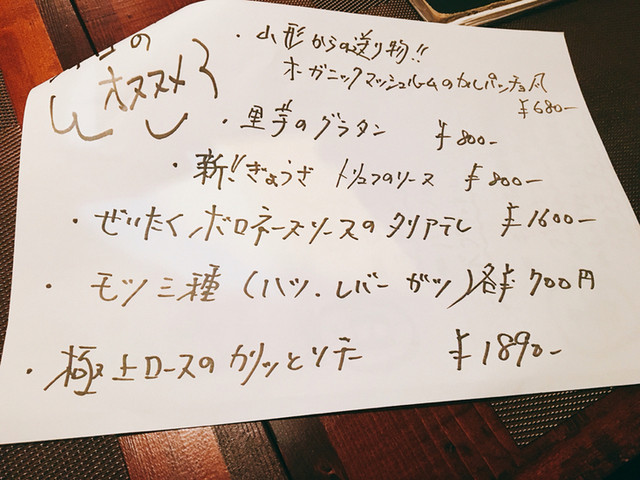 の
オススメ
・山形からの送り物!!
オーガニックマッシュルームのカルパッチョ風
¥680-
・里芋のグラタン ¥800-
・新!!ぎょうざ トリュフのソース ¥800-
・ぜいたくボロネーズソースのタリアテレ ¥1600-
・モツ三種(ハツ.レバー ガツ)各¥700円
・極上ロースのカリッとソテー ¥1890-